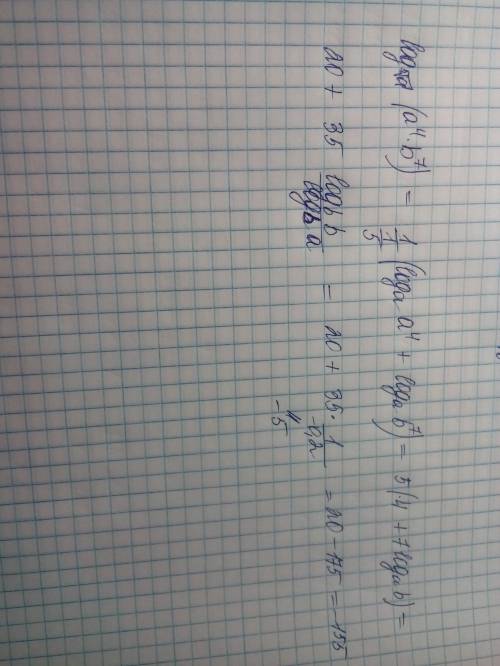 (a⁴·b⁷) = 1/(1/5) (logₐ a⁴ + logₐ b⁷) = 5(4 + 7logₐ b) =
20 + 35 log_b b / log_b a = 20 + 35 · 1/(-0,2) = 20 - 175 = -155
"
-5